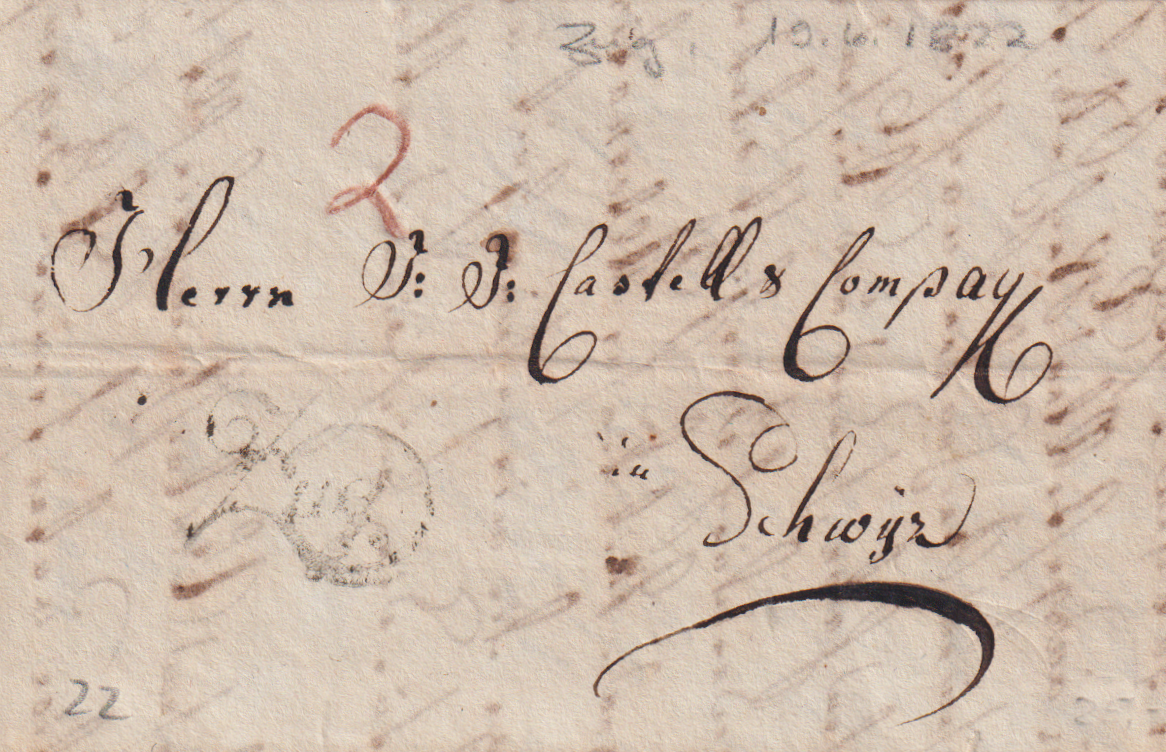 Zug. 10.6.1822
2
Herrn J: J: Castell & Compay
in
Schwÿz
Zug
22